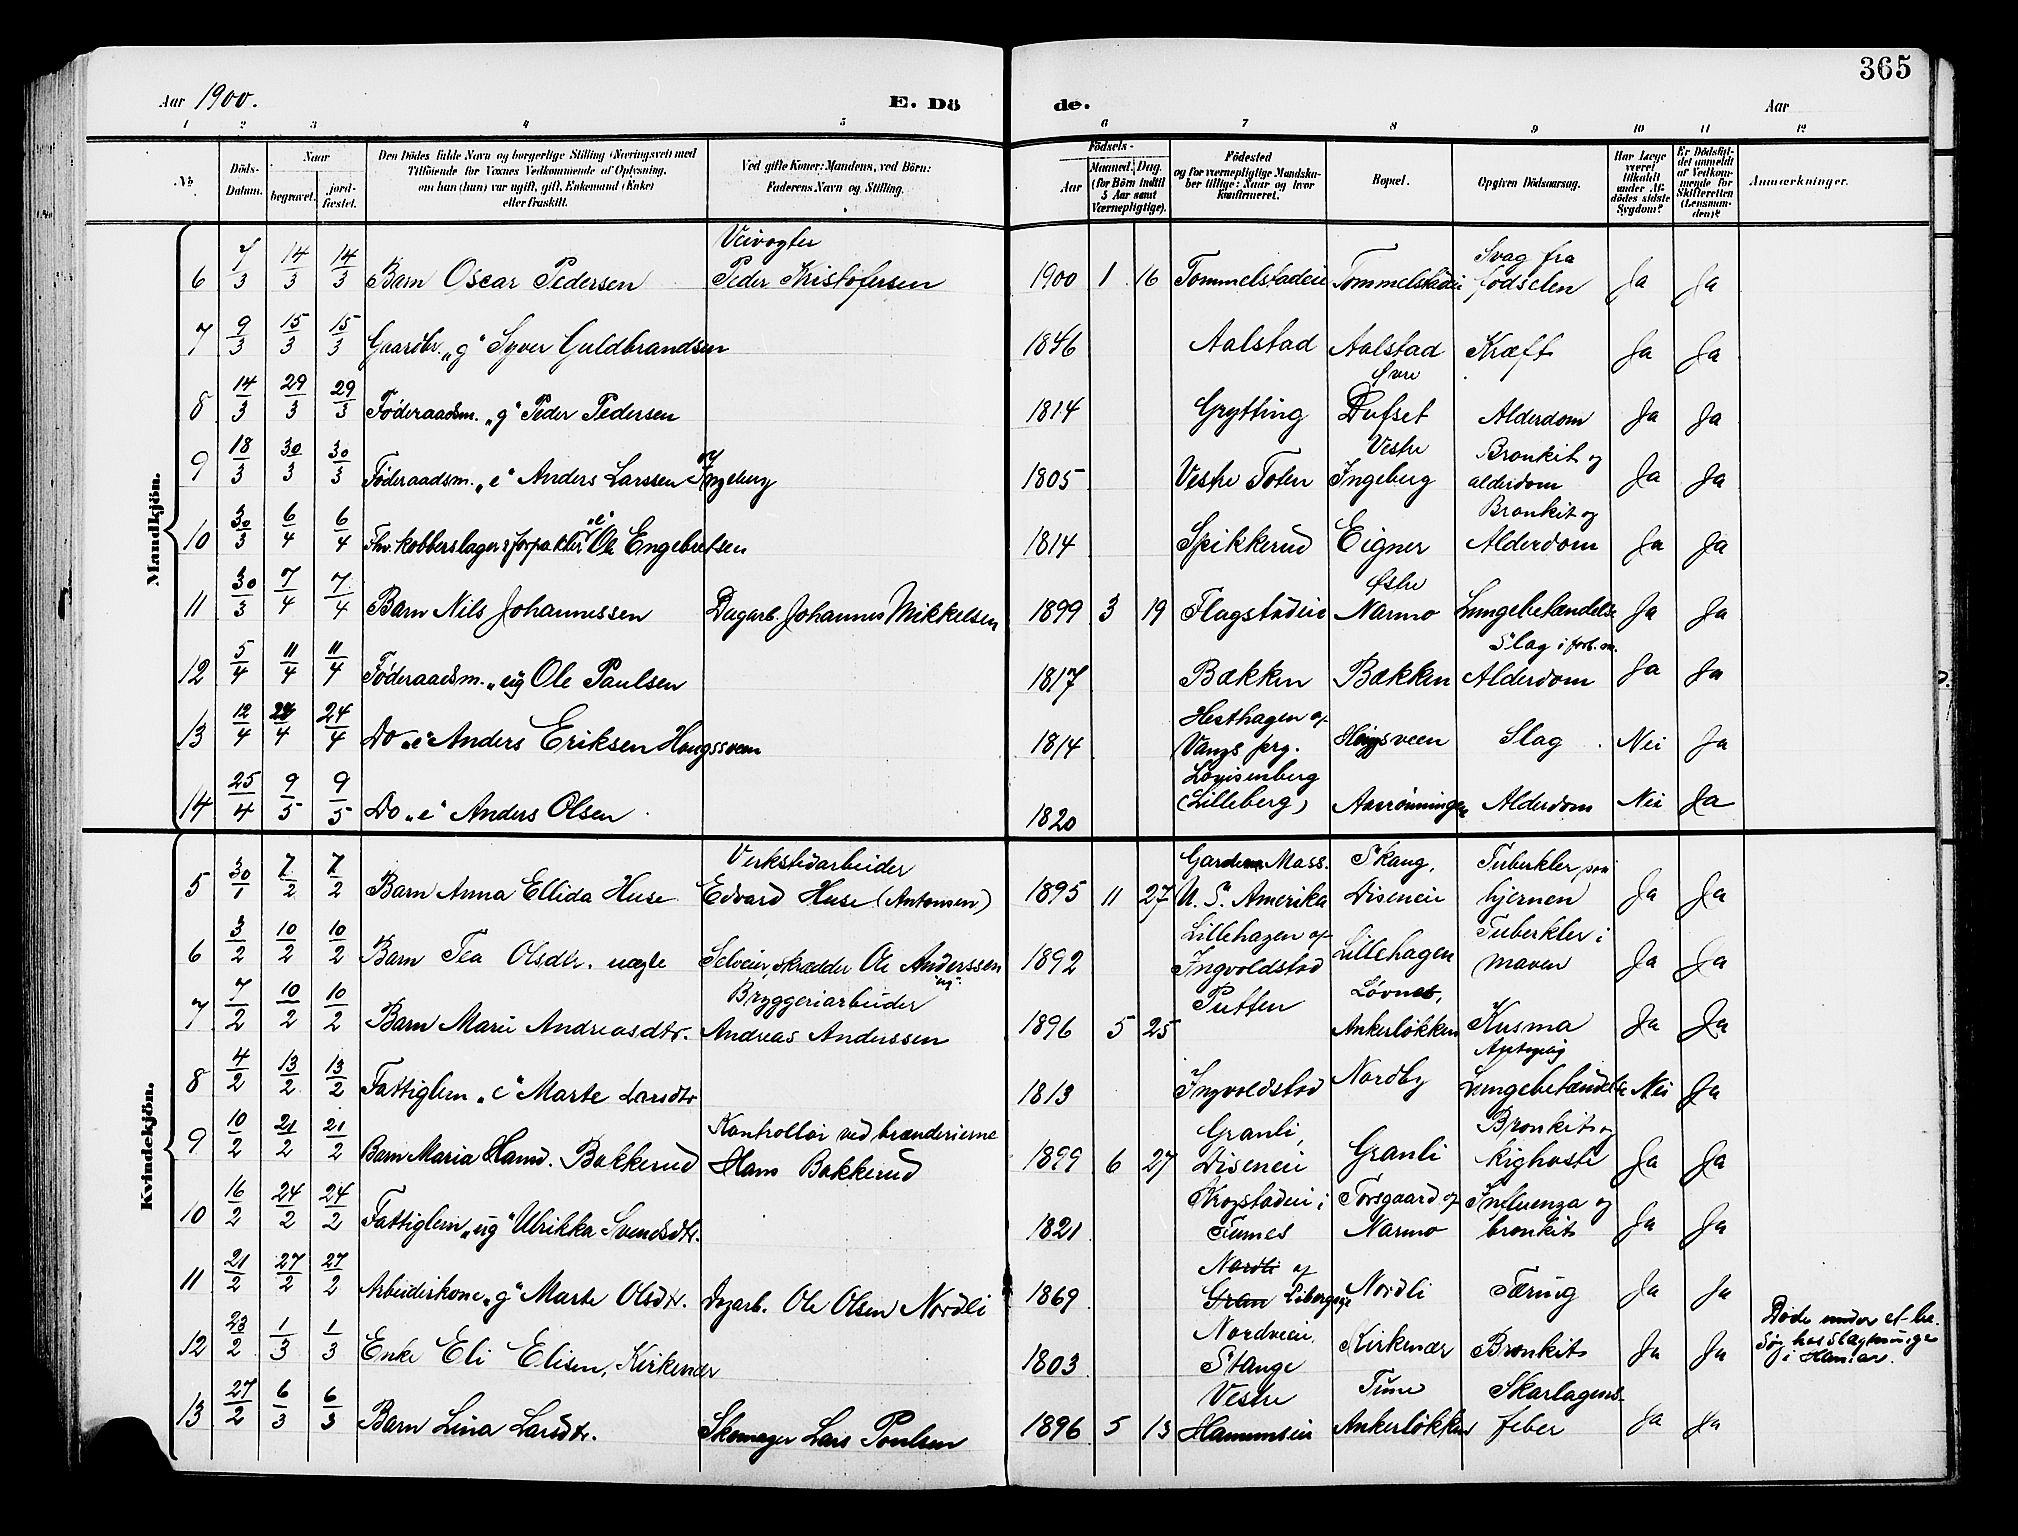 365
Aar 1900. E. Dö de. Aar
1 2 3 4 5 6 7 8 9 10 11 12
No. Döds-Datum. Naar begravet. jord-fæstet. Den Dödes fulde Navn og borgerlige Stilling (Næringsvei) med Tilföiende for Voxnes Vedkommende af Oplysning, om han (hun) var ugift, gift, Enkemand (Enke) eller fraskilt. Ved gifte Koner: Mandens, ved Börn: Faderens Navn og Stilling. Födsels- Aar Maaned. Dag. (for Börn indtil 5 Aar samt Værnepligtige). Födested og for værnepligtige Mandska-ber tillige: Naar og hvor konfirmeret. Bopæl. Opgiven Dödsaarsag. Har Læge været tilkaldt under Af-dödes sidste Sygdom? Er Dödsfal-det anmeldt af Vedkom-mende for Skifteretten (Lensman-den)? Anmærkninger.
Mandkjön.
6 7/3 14/3 14/3 Barn Oscar Pedersen Veivogter Peder Kristofersen 1900 1 16 Tommelstadeie Tommelstadeie Svag fra fødselen Ja Ja
7 9/3 15/3 15/3 Gaardbr. „g“ Syver Guldbrandsen 1846 Aalstad Aalstad Kræft Ja Ja
8 14/3 29/3 29/3 Føderaadsm. „g“ Peder Pedersen 1814 Grytting Øvre Dufset Alderdom Ja Ja
9 18/3 30/3 30/3 Føderaadsm. „e“ Anders Larssen Ingeberg 1805 Vestre Toten Vestre Ingeberg Bronkit og alderdom Ja Ja
10 30/3 6/4 6/4 Fhv. kobberslager & forpakter „e“ Ole Engebretsen 1814 Spikkerud Eigner Bronkit og Alderdom Ja Ja
11 30/3 7/4 7/4 Barn Nils Johannessen Dagarb. Johannes Mikkelsen 1899 3 19 Flagstadeie Østre Narmo Lungebetændelse Ja Ja
12 5/4 11/4 11/4 Føderaadsm. „ug Ole Paulsen 1817 Bækken Bækken Slag i forb. m. Alderdom Ja Ja
13 12/4 24/4 24/4 Do „e“ Anders Eriksen Hougssveen 1814 Hesthagen af Vangs prg. Hougsveen Slag Nei Ja
14 25/4 9/5 9/5 Do „e“ Anders Olsen 1820 Lovisenberg (Lilleberg) Aasrønningen Alderdom Nei Ja
Kvindekjön.
5 30/1 7/2 7/2 Barn Anna Ellida Huse Verkstedarbeider Edvard Huse (Antonsen) 1895 11 27 Mass. U. S. Amerika Skaug, Diseneie Tuberkler paa hjernen Ja Ja
6 3/2 10/2 10/2 Barn Tea Olsdtr. uægte Selveier skrædder Ole Anderssen ug. 1892 Lillehagen af Ingvoldstad Lillehagen Tuberkler i maven Ja Ja
7 7/2 10/2 10/2 Barn Marie Andreasdtr. Bryggeriarbeider Andreas Anderssen 1896 5 25 Putten Løvnes, Ankerløkken Kusma Ja Ja
8 4/2 13/2 13/2 Fattiglem „e“ Marte Larsdtr 1813 Ingvoldstad Nordby Lungebetændelse Nei Ja
9 10/2 21/2 21/2 Barn Maria Hansd. Bakkerud Kontrollør ved brænderierne Hans Bakkerud 1899 6 27 Granli, Diseneie Granli Bronkit og kighoste Ja Ja
10 16/2 24/2 24/2 Fattiglem „ug“ Ulrikka Svendsdtr. 1821 Krogstadeie i Furnes Torsgaard af Narmo Influenza og bronkit Ja Ja
11 21/2 27/2 27/2 Arbeiderkone „g“ Marte Olsdtr. Dagarb. Ole Olsen Nordli 1869 Nordli af Gran Libergseie Nordli Tæring Ja Ja
12 23/2 1/3 1/3 Enke Eli Elisen, Kirkenær 1803 Nordveie, Stange Kirkenær Bronkit Ja Ja Døde under et besøg hos Slagtninge i Hamar.
13 27/2 6/3 6/3 Barn Lina Larsdtr. Skomager Lars Poulsen 1896 5 13 Vestre Hammseie Tune Ankerløkken Skarlagens-feber Ja Ja